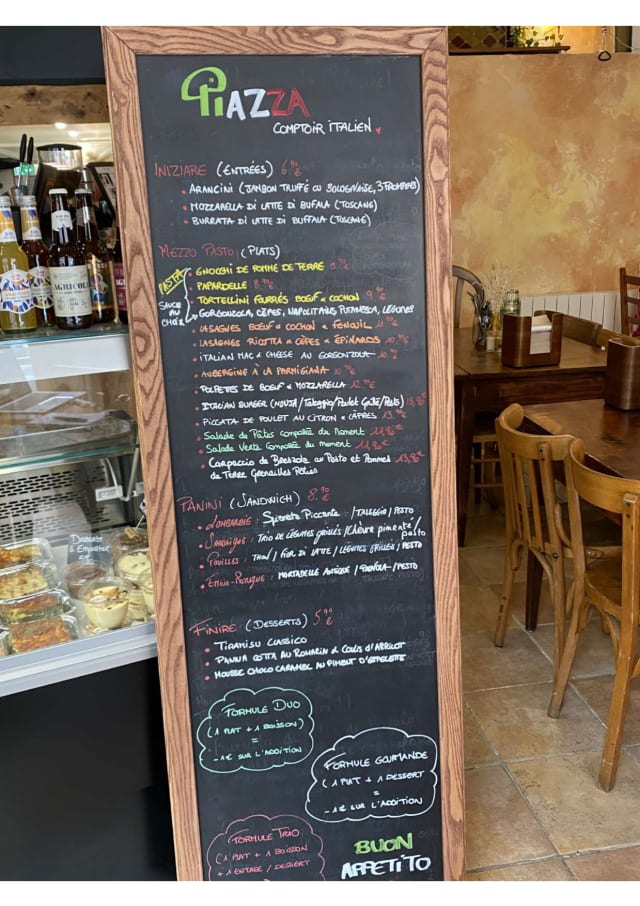 PIAZZA
COMPTOIR ITALIEN
INIZIARE (ENTRÉES) 6.90€
• ARANCINI (JAMBON TRUFFÉ OU BOLOGNAISE, 3 FROMAGES)
• MOZZARELLA DI LATTE DI BUFALA (TOSCANE)
• BURRATA DI LATTE DI BUFFALA (TOSCANE)
MEZZO PASTO (PLATS)
PASTA
SAUCE AU CHOIX
• GNOCCHI DE POMME DE TERRE
PAPARDELLE 8.90
• TORTELLINI FOURRÉS BOEUF & COCHON 9.90
GORGONZOLA, CÈPES, NAPOLITAINE, PUTANESCA, LÉGUMES
• LASAGNES BOEUF & COCHON & FENOUIL
• LASAGNES RICOTTA & CÈPES & ÉPINARDS
• ITALIAN MAC & CHEESE AU GORGONZOLA
• AUBERGINE À LA PARMIGIANA
• POLPETES DE BOEUF & MOZZARELLA
• ITALIAN BURGER
• PICCATA DE POULET AU CITRON & CÂPRES
• Salade de Pâtes composée du moment
• Salade Verte Composée du moment
• Carpaccio de Bresaola au Pesto et Pommes
de Terre Grenailles Rôties
PANINI (SANDWICH) 8.90€
• LOMBARDIE : Spianata Piccante / TALEGGIO / PESTO
• SARDAIGNE : TRIO DE LÉGUMES GRILLÉS / Chèvre pimenté / pesto
• POUILLES : THON / FIOR DI LATTE / LÉGUMES GRILLÉS / PESTO
• EMILIE-ROMAGNE : MORTADELLE / / PESTO
FINIRE (DESSERTS) 5.90€
• TIRAMISU CLASSICO
• PANNA COTTA AU ROMARIN & COULIS D'ABRICOT
• MOUSSE CHOCO CARAMEL AU PIMENT D'ESPELETTE
FORMULE DUO
(1 PLAT + 1 BOISSON)
=
-1€ SUR L'ADDITION
FORMULE GOURMANDE
(1 PLAT + 1 DESSERT
=
-1€ SUR L'ADDITION
FORMULE TRIO
(1 PLAT + 1 BOISSON
+ 1 ENTRÉE / DESSERT
BUON
APPETITO
Desserts
à Emporter
AGRICOLA